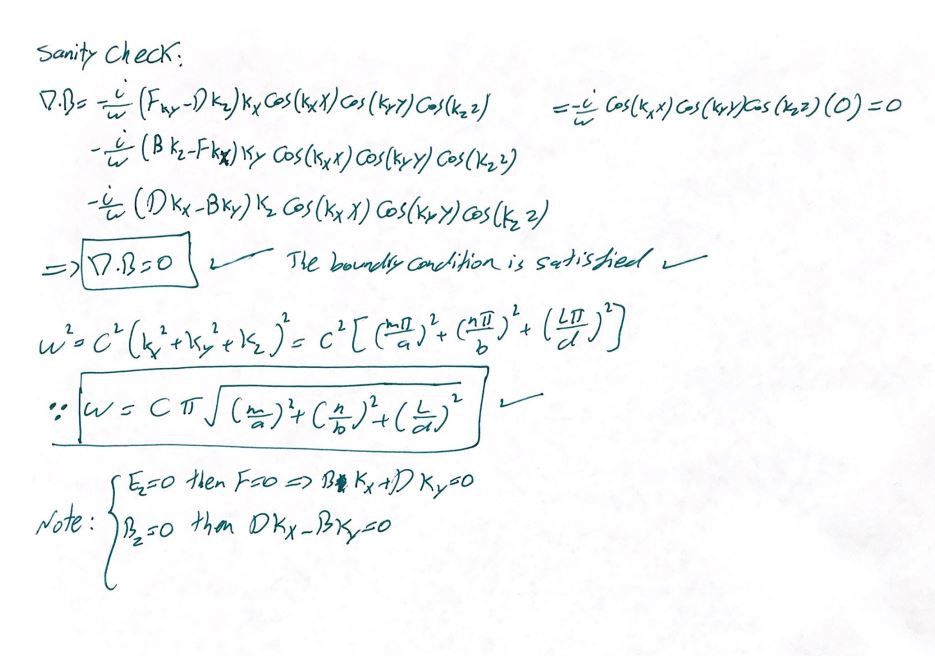 Sanity Check:
∇.B= -i/w (Fky-Dkz)kx Cos(kxx) Cos(kyy) Cos(kzz) = -i/w Cos(kxx) Cos(kyy) Cos(kzz) (0) = 0
-i/w (Bkz-Fkx)ky Cos(kxx) Cos(kyy) Cos(kzz)
-i/w (Dkx-Bky)kz Cos(kxx) Cos(kyy) Cos(kzz)
=> ∇.B=0 ✓ The boundry condition is satisfied ✓
w² = c²(kx²+ky²+kz)² = c²[(mπ/a)²+(nπ/b)²+(Lπ/d)²]
∵ w = cπ√((m/a)²+(n/b)²+(L/d)²) ✓
Note: { Ez=0 then F=0 => B kx+D ky=0
Bz=0 then Dkx-Bky=0